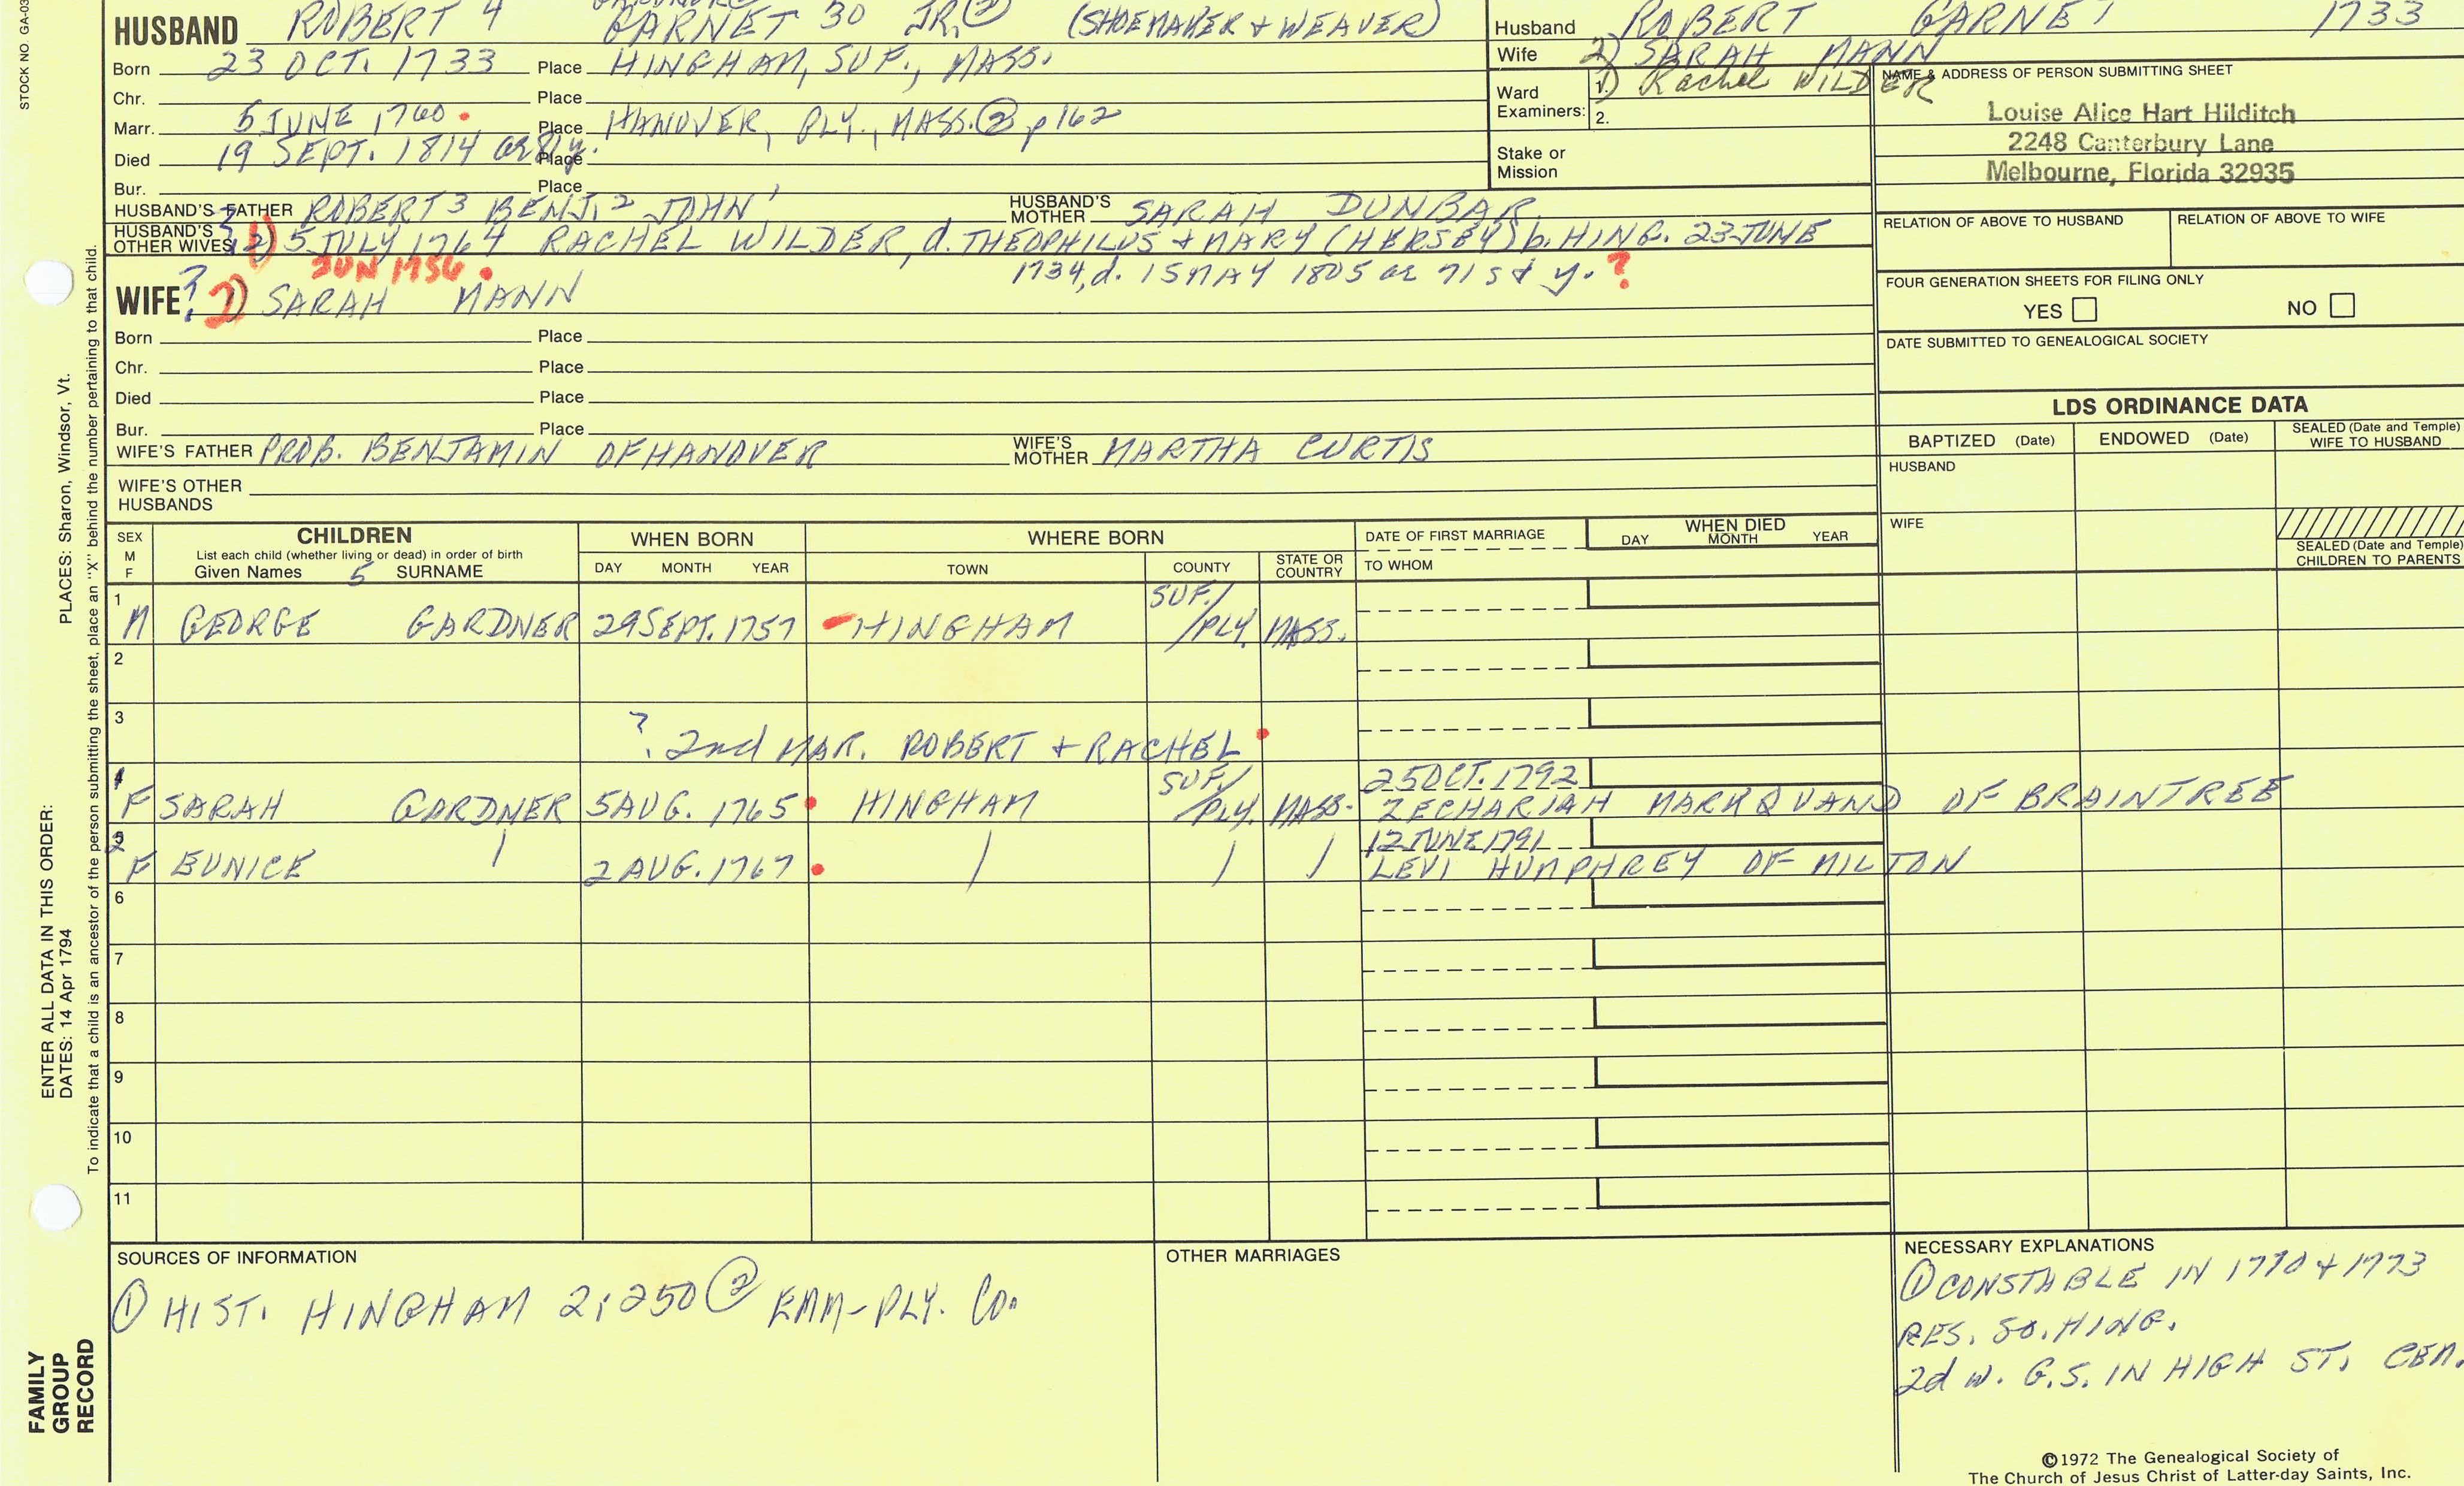 STOCK NO. GA-03
HUSBAND ROBERT 4 GARNET 30 JR. ② (SHOEMAKER + WEAVER)
Born 23 OCT. 1733 Place HINGHAM, SUF., MASS.
Chr. Place
Marr. 5 JUNE 1760 Place HANOVER, PLY., MASS. ② p 162
Died 19 SEPT. 1814 Place
Bur. Place
HUSBAND'S FATHER ROBERT 3 BENJ. 2 JOHN 1 HUSBAND'S MOTHER SARAH DUNBAR
HUSBAND'S OTHER WIVES ? 2) 1) 5 JULY 1764 RACHEL WILDER, d. THEOPHILUS + MARY (HERSEY) b. HING. 23 JUNE
JUN 1756 1734, d. 15 MAY 1805 ae 71st y. ?
WIFE ? 2) 1) SARAH MANN
Born Place
Chr. Place
Died Place
Bur. Place
WIFE'S FATHER PROB. BENJAMIN OF HANOVER WIFE'S MOTHER MARTHA CURTIS
WIFE'S OTHER
HUSBANDS
Husband ROBERT GARNET 1733
Wife 2) SARAH MANN
Ward Examiners: 1. 1) Rachel WILDER
2.
Stake or
Mission
NAME & ADDRESS OF PERSON SUBMITTING SHEET
Louise Alice Hart Hilditch
2248 Canterbury Lane
Melbourne, Florida 32935
RELATION OF ABOVE TO HUSBAND RELATION OF ABOVE TO WIFE
FOUR GENERATION SHEETS FOR FILING ONLY
YES NO
DATE SUBMITTED TO GENEALOGICAL SOCIETY
LDS ORDINANCE DATA
BAPTIZED (Date) ENDOWED (Date) SEALED (Date and Temple) WIFE TO HUSBAND
HUSBAND
WIFE
SEALED (Date and Temple)
CHILDREN TO PARENTS
SEX M F CHILDREN WHEN BORN WHERE BORN DATE OF FIRST MARRIAGE WHEN DIED
List each child (whether living or dead) in order of birth
Given Names 5 SURNAME DAY MONTH YEAR TOWN COUNTY STATE OR COUNTRY TO WHOM DAY MONTH YEAR
1 M GEORGE GARDNER 29 SEPT. 1757 HINGHAM SUF./PLY. MASS.
2
3 ? 2nd MAR. ROBERT + RACHEL
25 OCT. 1792
4 F SARAH GARDNER 5 AUG. 1765 HINGHAM SUF./PLY. MASS. ZECHARIAH MARKQUAND OF BRAINTREE
12 JUNE 1791
5 F EUNICE 2 AUG. 1767 LEVI HUMPHREY OF MILTON
6
7
8
9
10
11
SOURCES OF INFORMATION
① HIST. HINGHAM 2:250 ② EMM-PLY. CO.
OTHER MARRIAGES
NECESSARY EXPLANATIONS
① CONSTABLE IN 1770 + 1773
RES. SO. HING.
2d w. G.S. IN HIGH ST. CEM.
©1972 The Genealogical Society of
The Church of Jesus Christ of Latter-day Saints, Inc.
PLACES: Sharon, Windsor, Vt.
ENTER ALL DATA IN THIS ORDER:
DATES: 14 Apr 1794
To indicate that a child is an ancestor of the person submitting the sheet, place an "X" behind the number pertaining to that child.
FAMILY
GROUP
RECORD